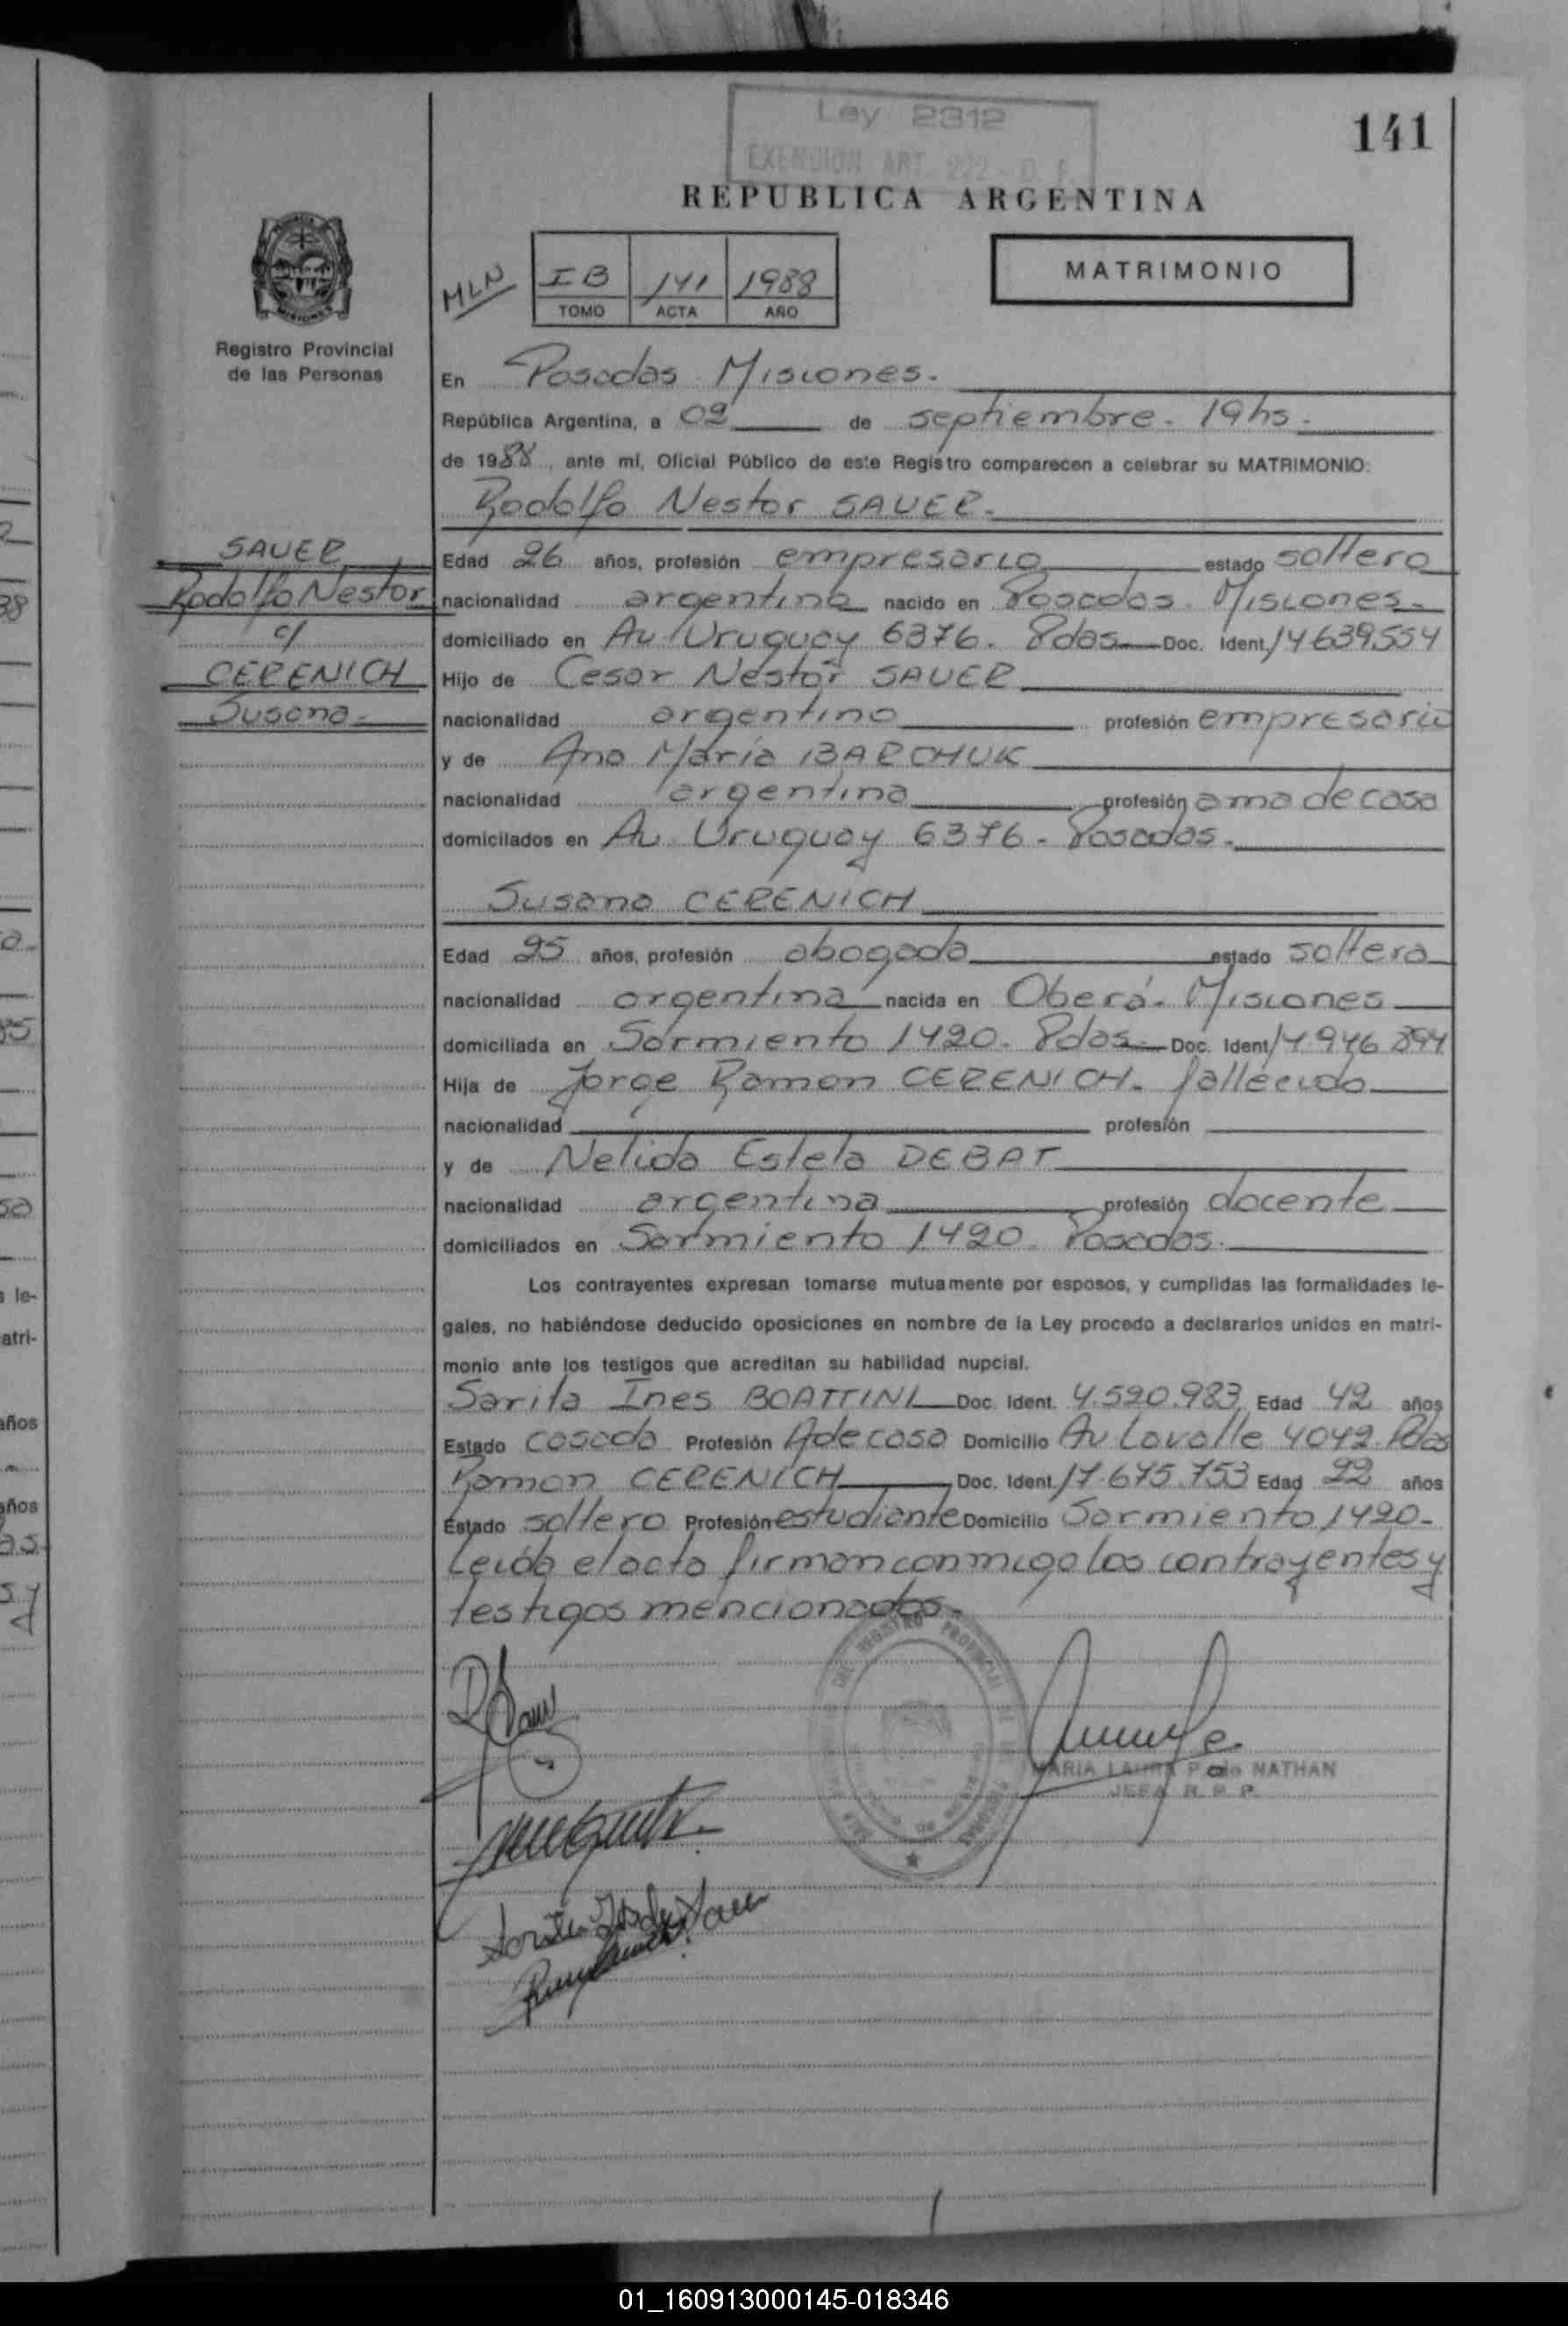 Ley 2312
EXENCION ART. 222 - C. F.
141
REPUBLICA ARGENTINA
MLN
I B 141 1988
TOMO ACTA AÑO
MATRIMONIO
Registro Provincial
de las Personas
En Posadas Misiones.
República Argentina, a 02 de septiembre. 19hs.
de 1988, ante mí, Oficial Público de este Registro comparecen a celebrar su MATRIMONIO:
Rodolfo Nestor SAUER.
SAUER
Rodolfo Nestor
c/
CERENICH
Susana.
Edad 26 años, profesión empresario estado soltero
nacionalidad argentina nacido en Posadas. Misiones.
domiciliado en Av Uruguay 6376. Pdas Doc. Ident. 14639554
Hijo de Cesar Nestor SAUER
nacionalidad argentino profesión empresario
y de Ana María BARCHUK
nacionalidad argentina profesión ama de casa
domicilados en Av. Uruguay 6376 - Posadas.
Susana CERENICH
Edad 25 años, profesión abogada estado soltera
nacionalidad argentina nacida en Oberá. Misiones
domiciliada en Sarmiento 1420. Pdas. Doc. Ident. 14.946.894
Hija de Jorge Ramon CERENICH. fallecido
nacionalidad profesión
y de Nelida Estela DEBAT
nacionalidad argentina profesión docente
domiciliados en Sarmiento 1420. Posadas.
Los contrayentes expresan tomarse mutuamente por esposos, y cumplidas las formalidades le-
gales, no habiéndose deducido oposiciones en nombre de la Ley procedo a declararlos unidos en matri-
monio ante los testigos que acreditan su habilidad nupcial.
Sarita Ines BOATTINI Doc. Ident. 4.520.983 Edad 42 años
Estado casada Profesión A de casa Domicilio Av Lavalle 4042. Pdas
Ramon CERENICH Doc. Ident. 17.675.753 Edad 22 años
Estado soltero Profesión estudiante Domicilio Sarmiento 1420.
Leída el acta firman conmigo los contrayentes y
testigos mencionados.
MARIA LAURA P. de NATHAN
JEFA R. P. P.
01_160913000145-018346